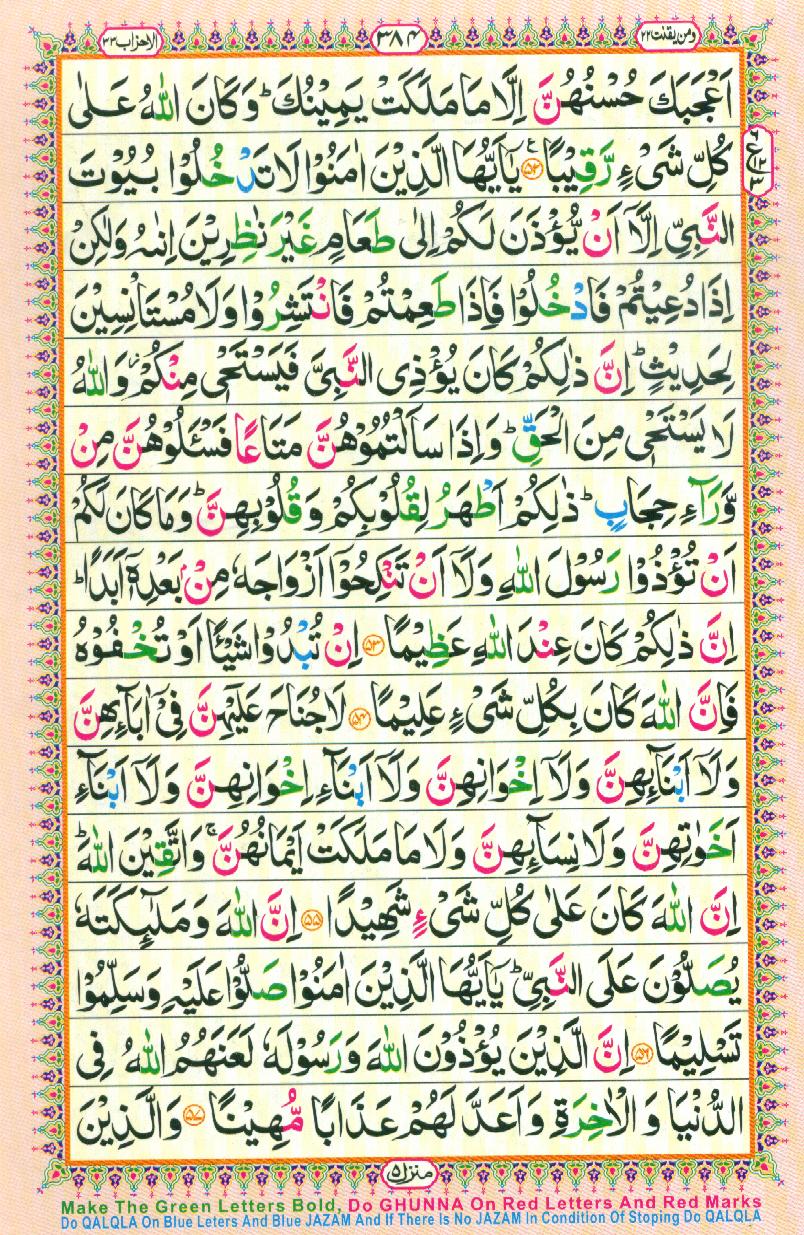 ومن یقنت ۲۲
۳۸۴
الاحزاب ۳۳
اَعْجَبَكَ حُسْنُهُنَّ اِلَّا مَا مَلَكَتْ یَمِیْنُكَ ؕ وَكَانَ اللّٰهُ عَلٰی
كُلِّ شَیْءٍ رَّقِیْبًا ﴿۵۲﴾ یٰۤاَیُّهَا الَّذِیْنَ اٰمَنُوْا لَا تَدْخُلُوْا بُیُوْتَ
النَّبِیِّ اِلَّاۤ اَنْ یُّؤْذَنَ لَكُمْ اِلٰی طَعَامٍ غَیْرَ نٰظِرِیْنَ اِنٰىهُ وَلٰكِنْ
اِذَا دُعِیْتُمْ فَادْخُلُوْا فَاِذَا طَعِمْتُمْ فَانْتَشِرُوْا وَلَا مُسْتَاْنِسِیْنَ
لِحَدِیْثٍ ؕ اِنَّ ذٰلِكُمْ كَانَ یُؤْذِی النَّبِیَّ فَیَسْتَحْیٖ مِنْكُمْ ؗ وَاللّٰهُ
لَا یَسْتَحْیٖ مِنَ الْحَقِّ ؕ وَاِذَا سَاَلْتُمُوْهُنَّ مَتَاعًا فَسْـَٔلُوْهُنَّ مِنْ
وَّرَآءِ حِجَابٍ ؕ ذٰلِكُمْ اَطْهَرُ لِقُلُوْبِكُمْ وَقُلُوْبِهِنَّ ؕ وَمَا كَانَ لَكُمْ
اَنْ تُؤْذُوْا رَسُوْلَ اللّٰهِ وَلَاۤ اَنْ تَنْكِحُوْۤا اَزْوَاجَهٗ مِنْۢ بَعْدِهٖۤ اَبَدًا ؕ
اِنَّ ذٰلِكُمْ كَانَ عِنْدَ اللّٰهِ عَظِیْمًا ﴿۵۳﴾ اِنْ تُبْدُوْا شَیْـًٔا اَوْ تُخْفُوْهُ
فَاِنَّ اللّٰهَ كَانَ بِكُلِّ شَیْءٍ عَلِیْمًا ﴿۵۴﴾ لَا جُنَاحَ عَلَیْهِنَّ فِیْۤ اٰبَآىِٕهِنَّ
وَلَاۤ اَبْنَآىِٕهِنَّ وَلَاۤ اِخْوَانِهِنَّ وَلَاۤ اَبْنَآءِ اِخْوَانِهِنَّ وَلَاۤ اَبْنَآءِ
اَخَوٰتِهِنَّ وَلَا نِسَآىِٕهِنَّ وَلَا مَا مَلَكَتْ اَیْمَانُهُنَّ ۚ وَاتَّقِیْنَ اللّٰهَ ؕ
اِنَّ اللّٰهَ كَانَ عَلٰی كُلِّ شَیْءٍ شَهِیْدًا ﴿۵۵﴾ اِنَّ اللّٰهَ وَمَلٰٓىِٕكَتَهٗ
یُصَلُّوْنَ عَلَی النَّبِیِّ ؕ یٰۤاَیُّهَا الَّذِیْنَ اٰمَنُوْا صَلُّوْا عَلَیْهِ وَسَلِّمُوْا
تَسْلِیْمًا ﴿۵۶﴾ اِنَّ الَّذِیْنَ یُؤْذُوْنَ اللّٰهَ وَرَسُوْلَهٗ لَعَنَهُمُ اللّٰهُ فِی
الدُّنْیَا وَالْاٰخِرَةِ وَاَعَدَّ لَهُمْ عَذَابًا مُّهِیْنًا ﴿۵۷﴾ وَالَّذِیْنَ
منزل ۵
Make The Green Letters Bold, Do GHUNNA On Red Letters And Red Marks
Do QALQLA On Blue Leters And Blue JAZAM And If There Is No JAZAM In Condition Of Stoping Do QALQLA